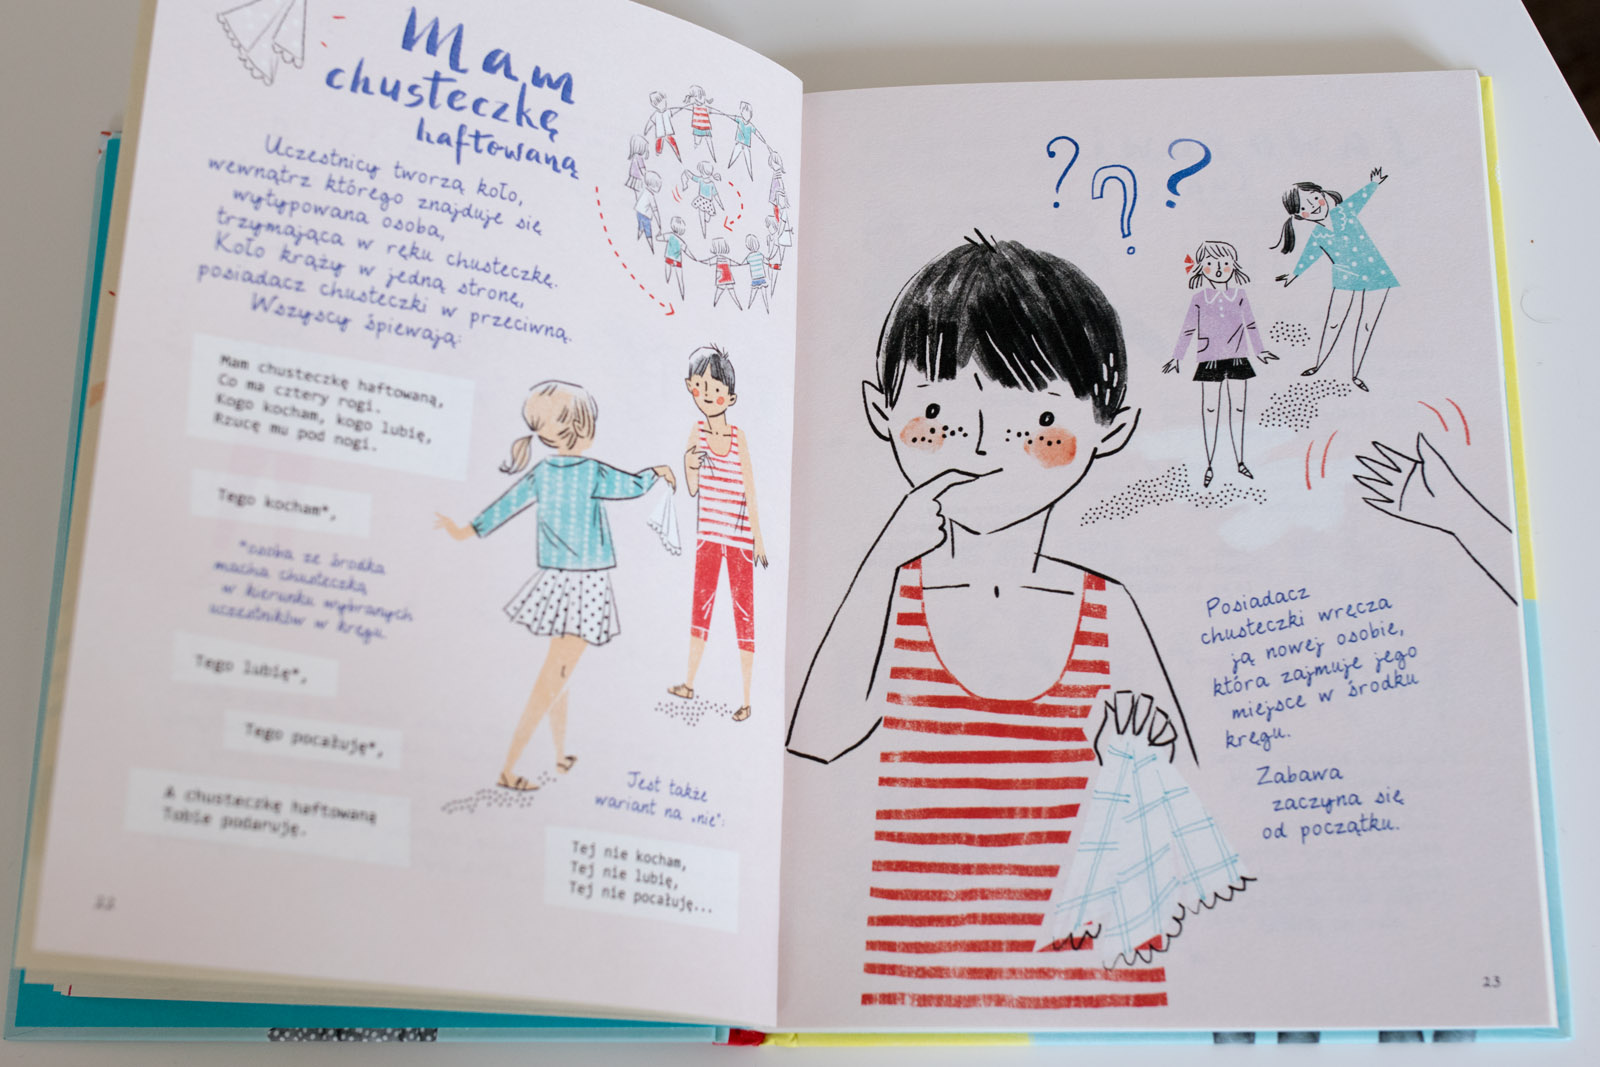 Mam
chusteczkę
haftowaną
Uczestnicy tworzą koło,
wewnątrz którego znajduje się
wytypowana osoba,
trzymająca w ręku chusteczkę.
Koło krąży w jedną stronę,
posiadacz chusteczki w przeciwną.
Wszyscy śpiewają:
Mam chusteczkę haftowaną,
Co ma cztery rogi.
Kogo kocham, kogo lubię,
Rzucę mu pod nogi.
Tego kocham*,
*osoba ze środka
macha chusteczką
w kierunku wybranych
uczestników w kręgu.
Tego lubię*,
Tego pocałuję*,
A chusteczkę haftowaną
Tobie podaruję.
Jest także
wariant na „nie":
Tej nie kocham,
Tej nie lubię,
Tej nie pocałuję...
22
???
Posiadacz
chusteczki wręcza
ją nowej osobie,
która zajmuje jego
miejsce w środku
kręgu.
Zabawa
zaczyna się
od początku.
23